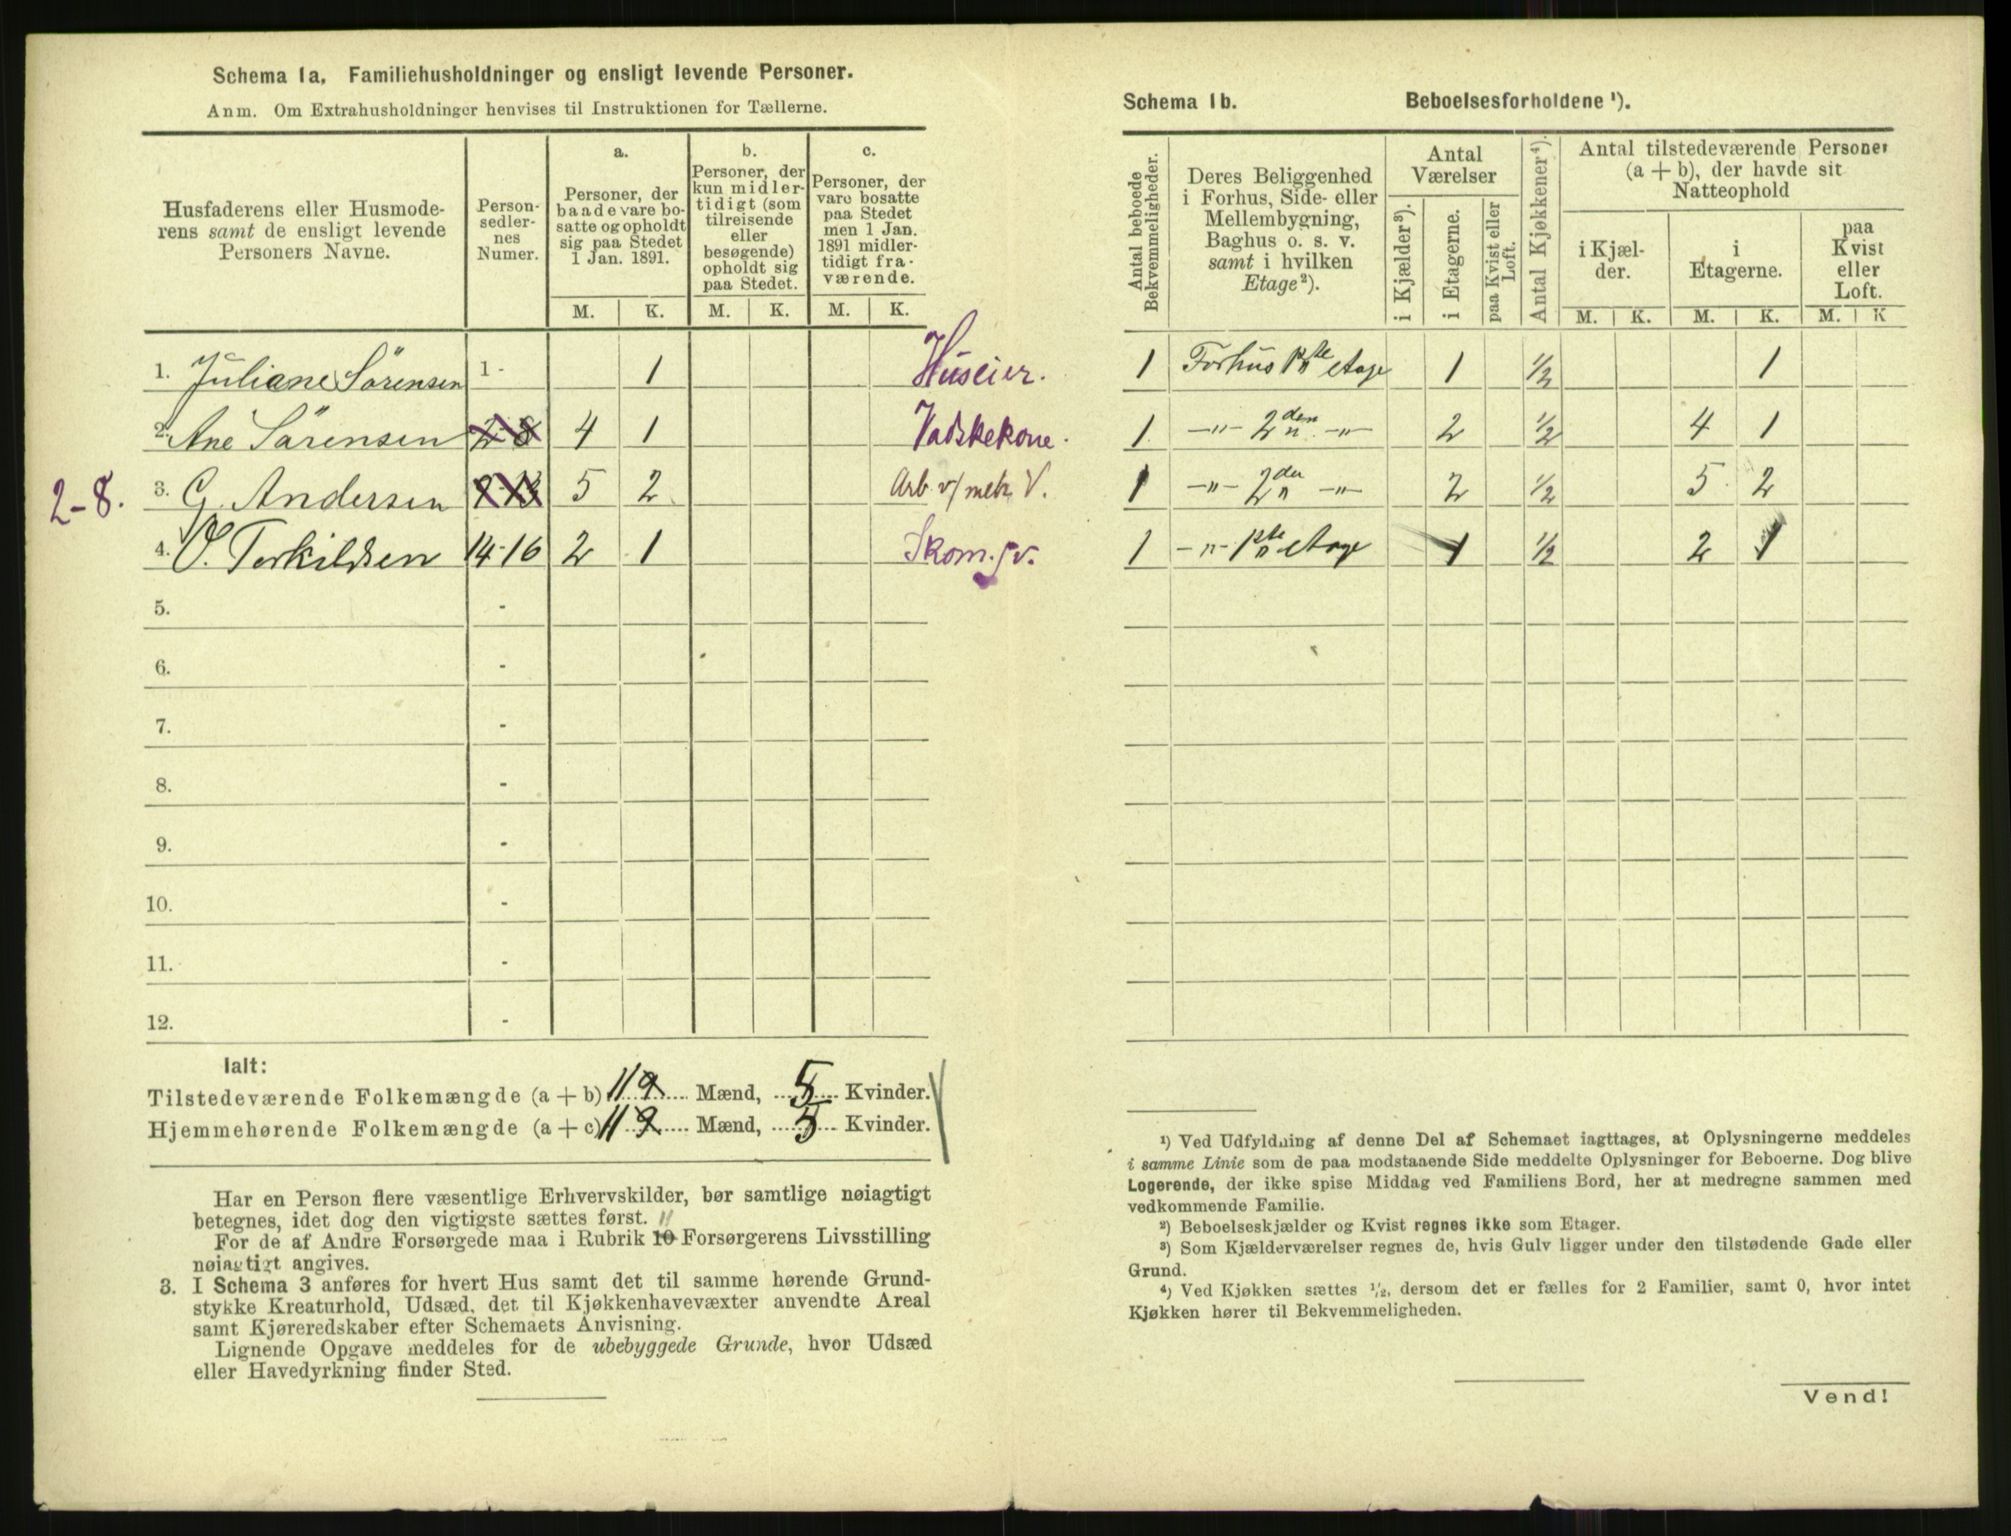 Schema 1a. Familiehusholdninger og ensligt levende Personer.
Anm. Om Extrahusholdninger henvises til Instruktionen for Tællerne.
Husfaderens eller Husmoderens samt de ensligt levende Personers Navne.
Personsedlernes Numer.
a.
Personer, der baade vare bosatte og opholdt sig paa Stedet 1 Jan. 1891.
b.
Personer, der kun midlertidigt (som tilreisende eller besøgende) opholdt sig paa Stedet.
c.
Personer, der vare bosatte paa Stedet men 1 Jan. 1891 midlertidigt fraværende.
M. K. M. K. M. K.
1. Juliane Sörensen 1 - 1 Huseier.
2. Ane Sörensen 2-8 4 1 Vadskekone.
2-8. 3. G. Andersen 5 2 Arb. v/ mek. V.
4. O. Torkildsen 14-16 2 1 Skom. sv.
5. -
6. -
7. -
8. -
9. -
10. -
11. -
12. -
Ialt:
Tilstedeværende Folkemængde (a + b) 11 Mænd, 5 Kvinder.
Hjemmehørende Folkemængde (a + c) 11 Mænd, 5 Kvinder.
Har en Person flere væsentlige Erhvervskilder, bør samtlige nøiagtigt
betegnes, idet dog den vigtigste sættes først. 11
For de af Andre Forsørgede maa i Rubrik 10 Forsørgerens Livsstilling
nøiagtigt angives.
3. I Schema 3 anføres for hvert Hus samt det til samme hørende Grund-
stykke Kreaturhold, Udsæd, det til Kjøkkenhavevæxter anvendte Areal
samt Kjøreredskaber efter Schemaets Anvisning.
Lignende Opgave meddeles for de ubebyggede Grunde, hvor Udsæd
eller Havedyrkning finder Sted.
Schema 1b. Beboelsesforholdene ¹).
Antal beboede Bekvemmeligheder.
Deres Beliggenhed i Forhus, Side- eller Mellembygning, Baghus o. s. v. samt i hvilken Etage²).
Antal Værelser
i Kjælder³).
i Etagerne.
paa Kvist eller Loft.
Antal Kjøkkener⁴).
Antal tilstedeværende Personer (a + b), der havde sit Natteophold
i Kjælder.
i Etagerne.
paa Kvist eller Loft.
M. K. M. K. M. K
1 Forhus 1ste etage 1 ½ 1
1 -"- 2den -"- 2 ½ 4 1
1 -"- 2den -"- 2 ½ 5 2
1 -"- 1ste etage 1 ½ 2 1
¹) Ved Udfyldning af denne Del af Schemaet iagttages, at Oplysningerne meddeles
i samme Linie som de paa modstaaende Side meddelte Oplysninger for Beboerne. Dog blive
Logerende, der ikke spise Middag ved Familiens Bord, her at medregne sammen med
vedkommende Familie.
²) Beboelseskjælder og Kvist regnes ikke som Etager.
³) Som Kjælderværelser regnes de, hvis Gulv ligger under den tilstødende Gade eller
Grund.
⁴) Ved Kjøkken sættes ½, dersom det er fælles for 2 Familier, samt 0, hvor intet
Kjøkken hører til Bekvemmeligheden.
Vend!